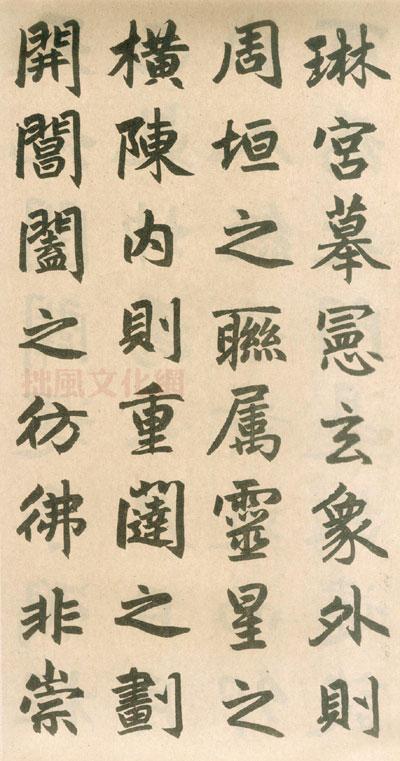 琳宮摹憲玄象外則
周垣之聯属靈星之
橫陳内則重闥之劃
開閶闔之彷彿非崇
拙風文化網